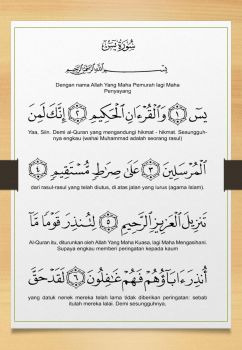 سُورَةُ يسٓ
بِسْمِ اللَّهِ الرَّحْمَٰنِ الرَّحِيمِ
Dengan nama Allah Yang Maha Pemurah lagi Maha
Penyayang
يسٓ ﴿١﴾ وَالْقُرْءَانِ الْحَكِيمِ ﴿٢﴾ إِنَّكَ لَمِنَ
Yaa, Siin. Demi al-Quran yang mengandungi hikmat - hikmat. Seseungguh-
nya engkau (wahai Muhammad adalah seorang rasul)
الْمُرْسَلِينَ ﴿٣﴾ عَلَىٰ صِرَٰطٍ مُّسْتَقِيمٍ ﴿٤﴾
dari rasul-rasul yang telah diutus, di atas jalan yang lurus (agama Islam).
تَنزِيلَ الْعَزِيزِ الرَّحِيمِ ﴿٥﴾ لِتُنذِرَ قَوْمًا مَّآ
Al-Quran itu, diturunkan oleh Allah Yang Maha Kuasa, lagi Maha Mengasihani.
Supaya engkau memberi peringatan kepada kaum
أُنذِرَ ءَابَآؤُهُمْ فَهُمْ غَٰفِلُونَ ﴿٦﴾ لَقَدْ حَقَّ
yang datuk nenek mereka telah lama tidak diberikan peringatan: sebab
itulah mereka lalai. Demi sesungguhnya,